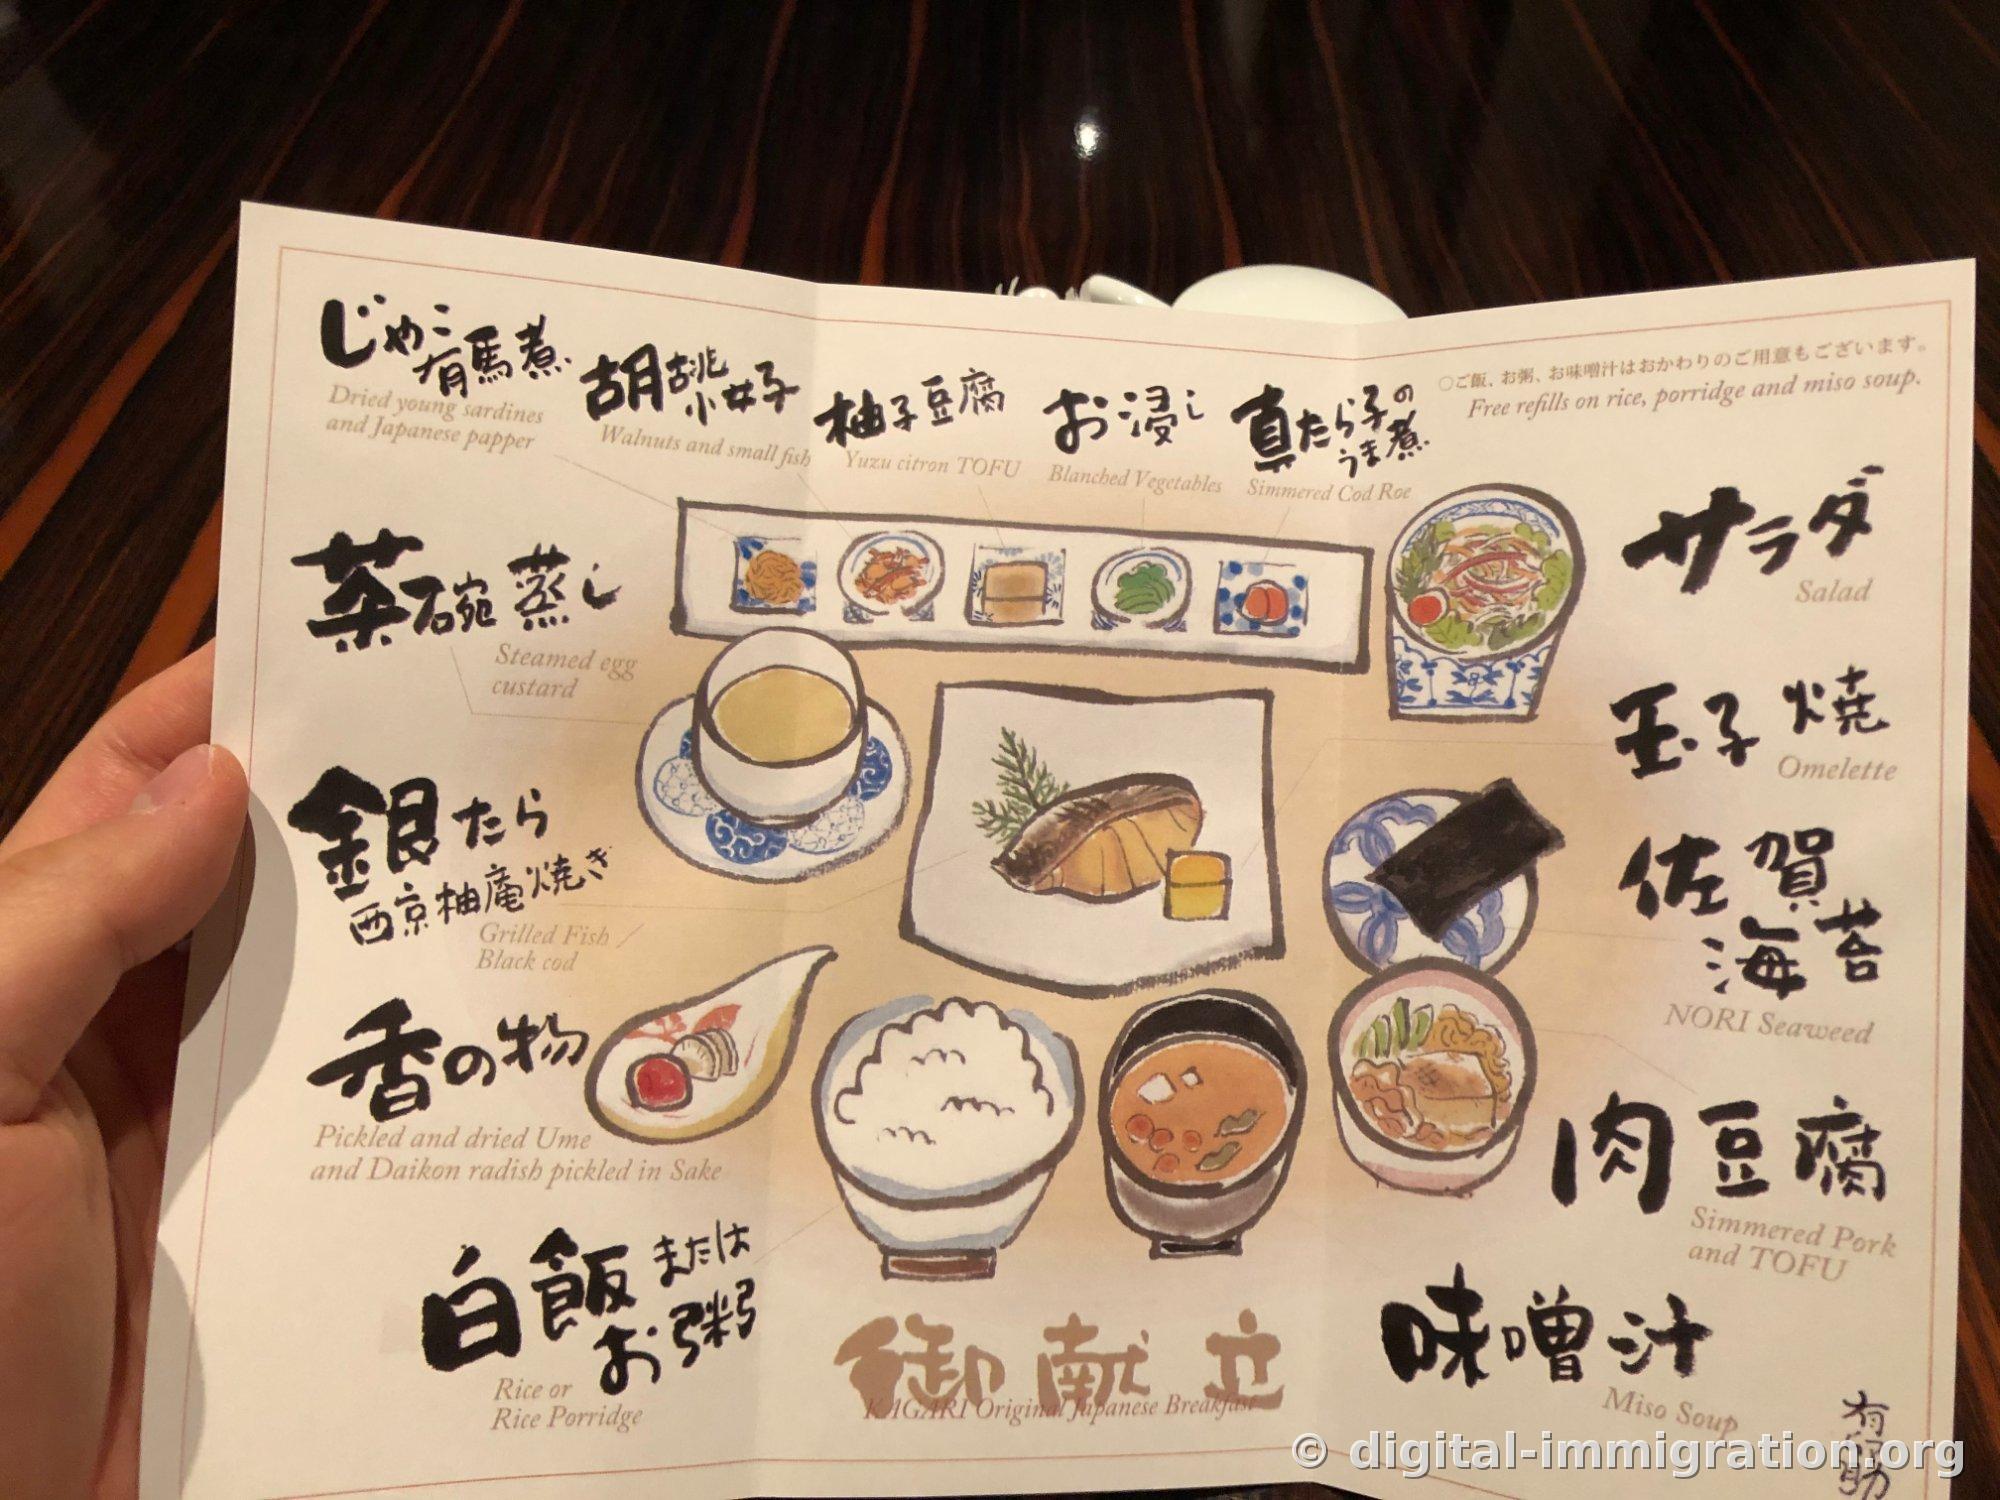 じゃこ
有馬煮
Dried young sardines
and Japanese papper
胡桃
小女子
Walnuts and small fish
柚子豆腐
Yuzu citron TOFU
お浸し
Blanched Vegetables
真たら子の
うま煮
Simmered Cod Roe
○ご飯、お粥、お味噌汁はおかわりのご用意もございます。
Free refills on rice, porridge and miso soup.
茶碗蒸し
Steamed egg
custard
サラダ
Salad
玉子焼
Omelette
銀たら
西京柚庵焼き
Grilled Fish /
Black cod
佐賀
海苔
NORI Seaweed
香の物
Pickled and dried Ume
and Daikon radish pickled in Sake
肉豆腐
Simmered Pork
and TOFU
白飯または
お粥
Rice or
Rice Porridge
味噌汁
Miso Soup
御献立
KAGARI Original Japanese Breakfast
© digital-immigration.org